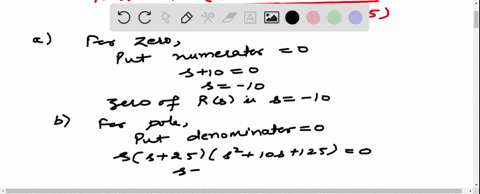 5)
a) For zero,
Put numerator = 0
s+10 = 0
s = -10
zero of R(s) is s = -10
b) For pole,
Put denominator = 0
s(s+25)(s²+10s+125) = 0
s =